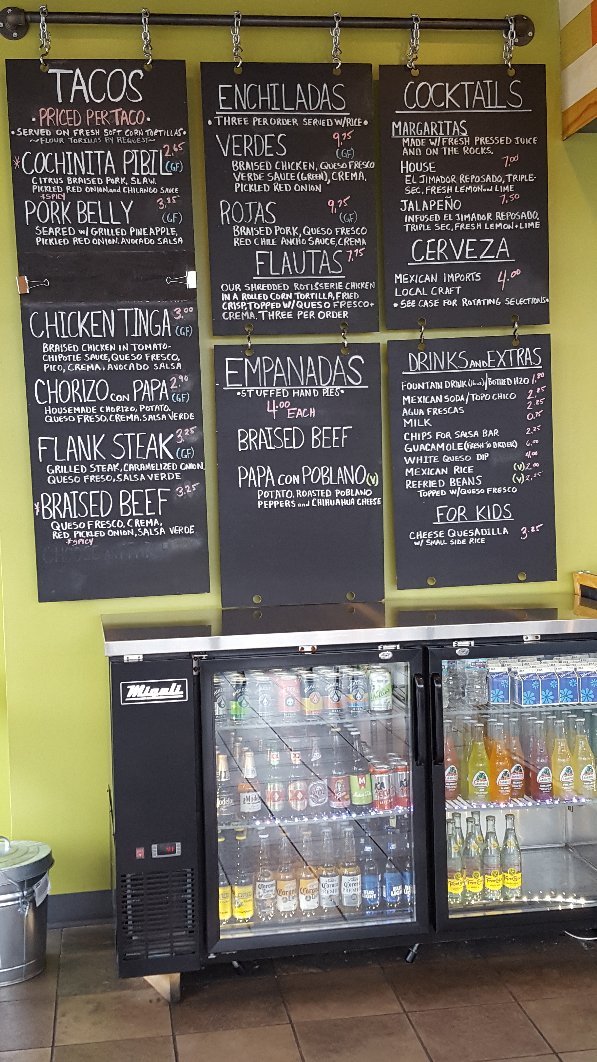 TACOS
PRICED PER TACO
• SERVED ON FRESH SOFT CORN TORTILLAS •
~ FLOUR TORTILLAS BY REQUEST ~
*COCHINITA PIBIL 2.85 (GF)
CITRUS BRAISED PORK, SLAW,
PICKLED RED ONION and CHILANGO SAUCE
*SPICY
PORK BELLY 3.25 (GF)
SEARED w/ GRILLED PINEAPPLE,
PICKLED RED ONION, AVOCADO SALSA
CHICKEN TINGA 3.00 (GF)
BRAISED CHICKEN IN TOMATO-
CHIPOTLE SAUCE, QUESO FRESCO,
PICO, CREMA, AVOCADO SALSA
CHORIZO CON PAPA 2.90 (GF)
HOUSEMADE CHORIZO, POTATO,
QUESO FRESO, CREMA, SALSA VERDE
FLANK STEAK 3.25 (GF)
GRILLED STEAK, CARAMELIZED ONION,
QUESO FRESO, SALSA VERDE
*BRAISED BEEF 3.25
QUESO FRESCO, CREMA,
RED PICKLED ONION, SALSA VERDE
*SPICY
ENCHILADAS
• THREE PER ORDER SERVED W/RICE •
VERDES 9.75 (GF)
BRAISED CHICKEN, QUESO FRESCO
VERDE SAUCE (GREEN), CREMA,
PICKLED RED ONION
ROJAS 9.75 (GF)
BRAISED PORK, QUESO FRESCO
RED CHILE ANCHO SAUCE, CREMA
FLAUTAS 7.75
OUR SHREDDED ROTISSERIE CHICKEN
IN A ROLLED CORN TORTILLA, FRIED
CRISP, TOPPED W/ QUESO FRESCO +
CREMA. THREE PER ORDER
EMPANADAS
• STUFFED HAND PIES •
4.00
EACH
BRAISED BEEF
PAPA CON POBLANO (V)
POTATO, ROASTED POBLANO
PEPPERS and CHIHUAHUA CHEESE
COCKTAILS
MARGARITAS
MADE W/ FRESH PRESSED JUICE
AND ON THE ROCKS.
HOUSE 7.00
EL JIMADOR REPOSADO, TRIPLE-
SEC, FRESH LEMON and LIME
JALAPEÑO 7.50
INFUSED EL JIMADOR REPOSADO,
TRIPLE SEC, FRESH LEMON + LIME
CERVEZA
MEXICAN IMPORTS
LOCAL CRAFT 4.00
• SEE CASE FOR ROTATING SELECTIONS •
DRINKS AND EXTRAS
FOUNTAIN DRINK / BOTTLED H2O 1.80
MEXICAN SODA / TOPO CHICO 2.85
AGUA FRESCAS 2.25
MILK 0.75
CHIPS FOR SALSA BAR 2.25
GUACAMOLE (FRESH TO ORDER) 6.00
WHITE QUESO DIP 4.00
MEXICAN RICE (V) 2.00
REFRIED BEANS (V) 2.25
TOPPED W/ QUESO FRESCO
FOR KIDS
CHEESE QUESADILLA 3.25
W/ SMALL SIDE RICE
Migali